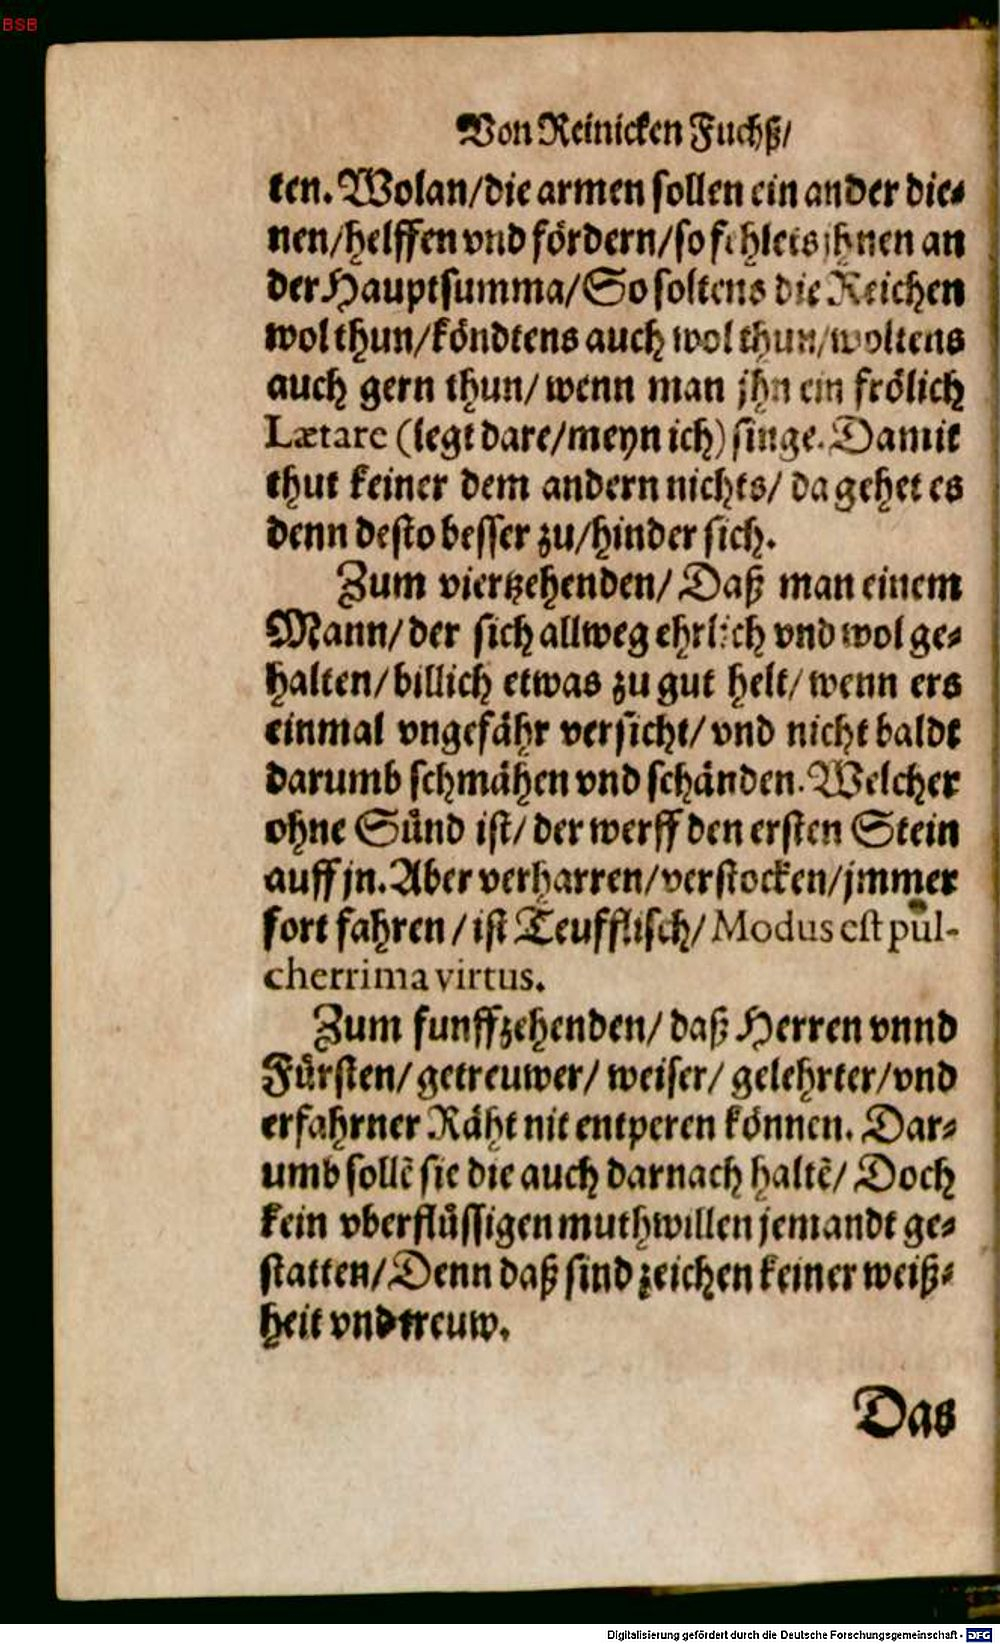 BSB
Von Reinicken Fuchß/
ten. Wolan/die armen sollen ein ander die-
nen/helffen vnd fördern/so fehlets jhnen an
der Hauptsumma/So soltens die Reichen
wol thun/köndtens auch wol thun/woltens
auch gern thun/ wenn man jhn ein frölich
Lætare (legt dare/meyn ich) singe. Damit
thut keiner dem andern nichts/ da gehet es
denn desto besser zu/hinder sich.
Zum viertzehenden/ Daß man einem
Mann/ der sich allweg ehrlich vnd wol ge-
halten/ billich etwas zu gut helt/ wenn ers
einmal vngefähr versicht/ vnd nicht baldt
darumb schmähen vnd schänden. Welcher
ohne Sünd ist/ der werff den ersten Stein
auff jn. Aber verharren/verstocken/jmmer
fort fahren / ist Teufflisch/ Modus est pul-
cherrima virtus.
Zum funffzehenden/ daß Herren vnnd
Fürsten/ getreuwer/ weiser/ gelehrter/vnd
erfahrner Räht nit entperen können. Dar-
umb sollē sie die auch darnach haltē/ Doch
kein vberflüssigen muthwillen jemandt ge-
statten/ Denn daß sind zeichen keiner weiß-
heit vnd treuw.
Das
Digitalisierung gefördert durch die Deutsche Forschungsgemeinschaft - DFG